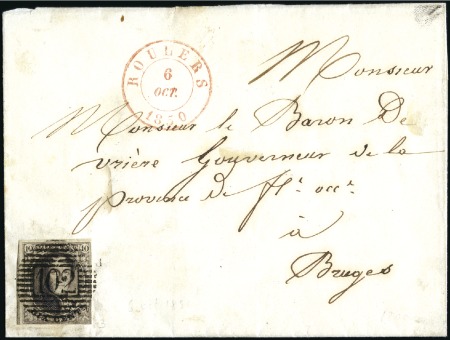 ROULERS
6
OCT.
1850
Monsieur
Monsieur le Baron De
Vrière Gouverneur de la
province de fl. occ.
à
Bruges
102